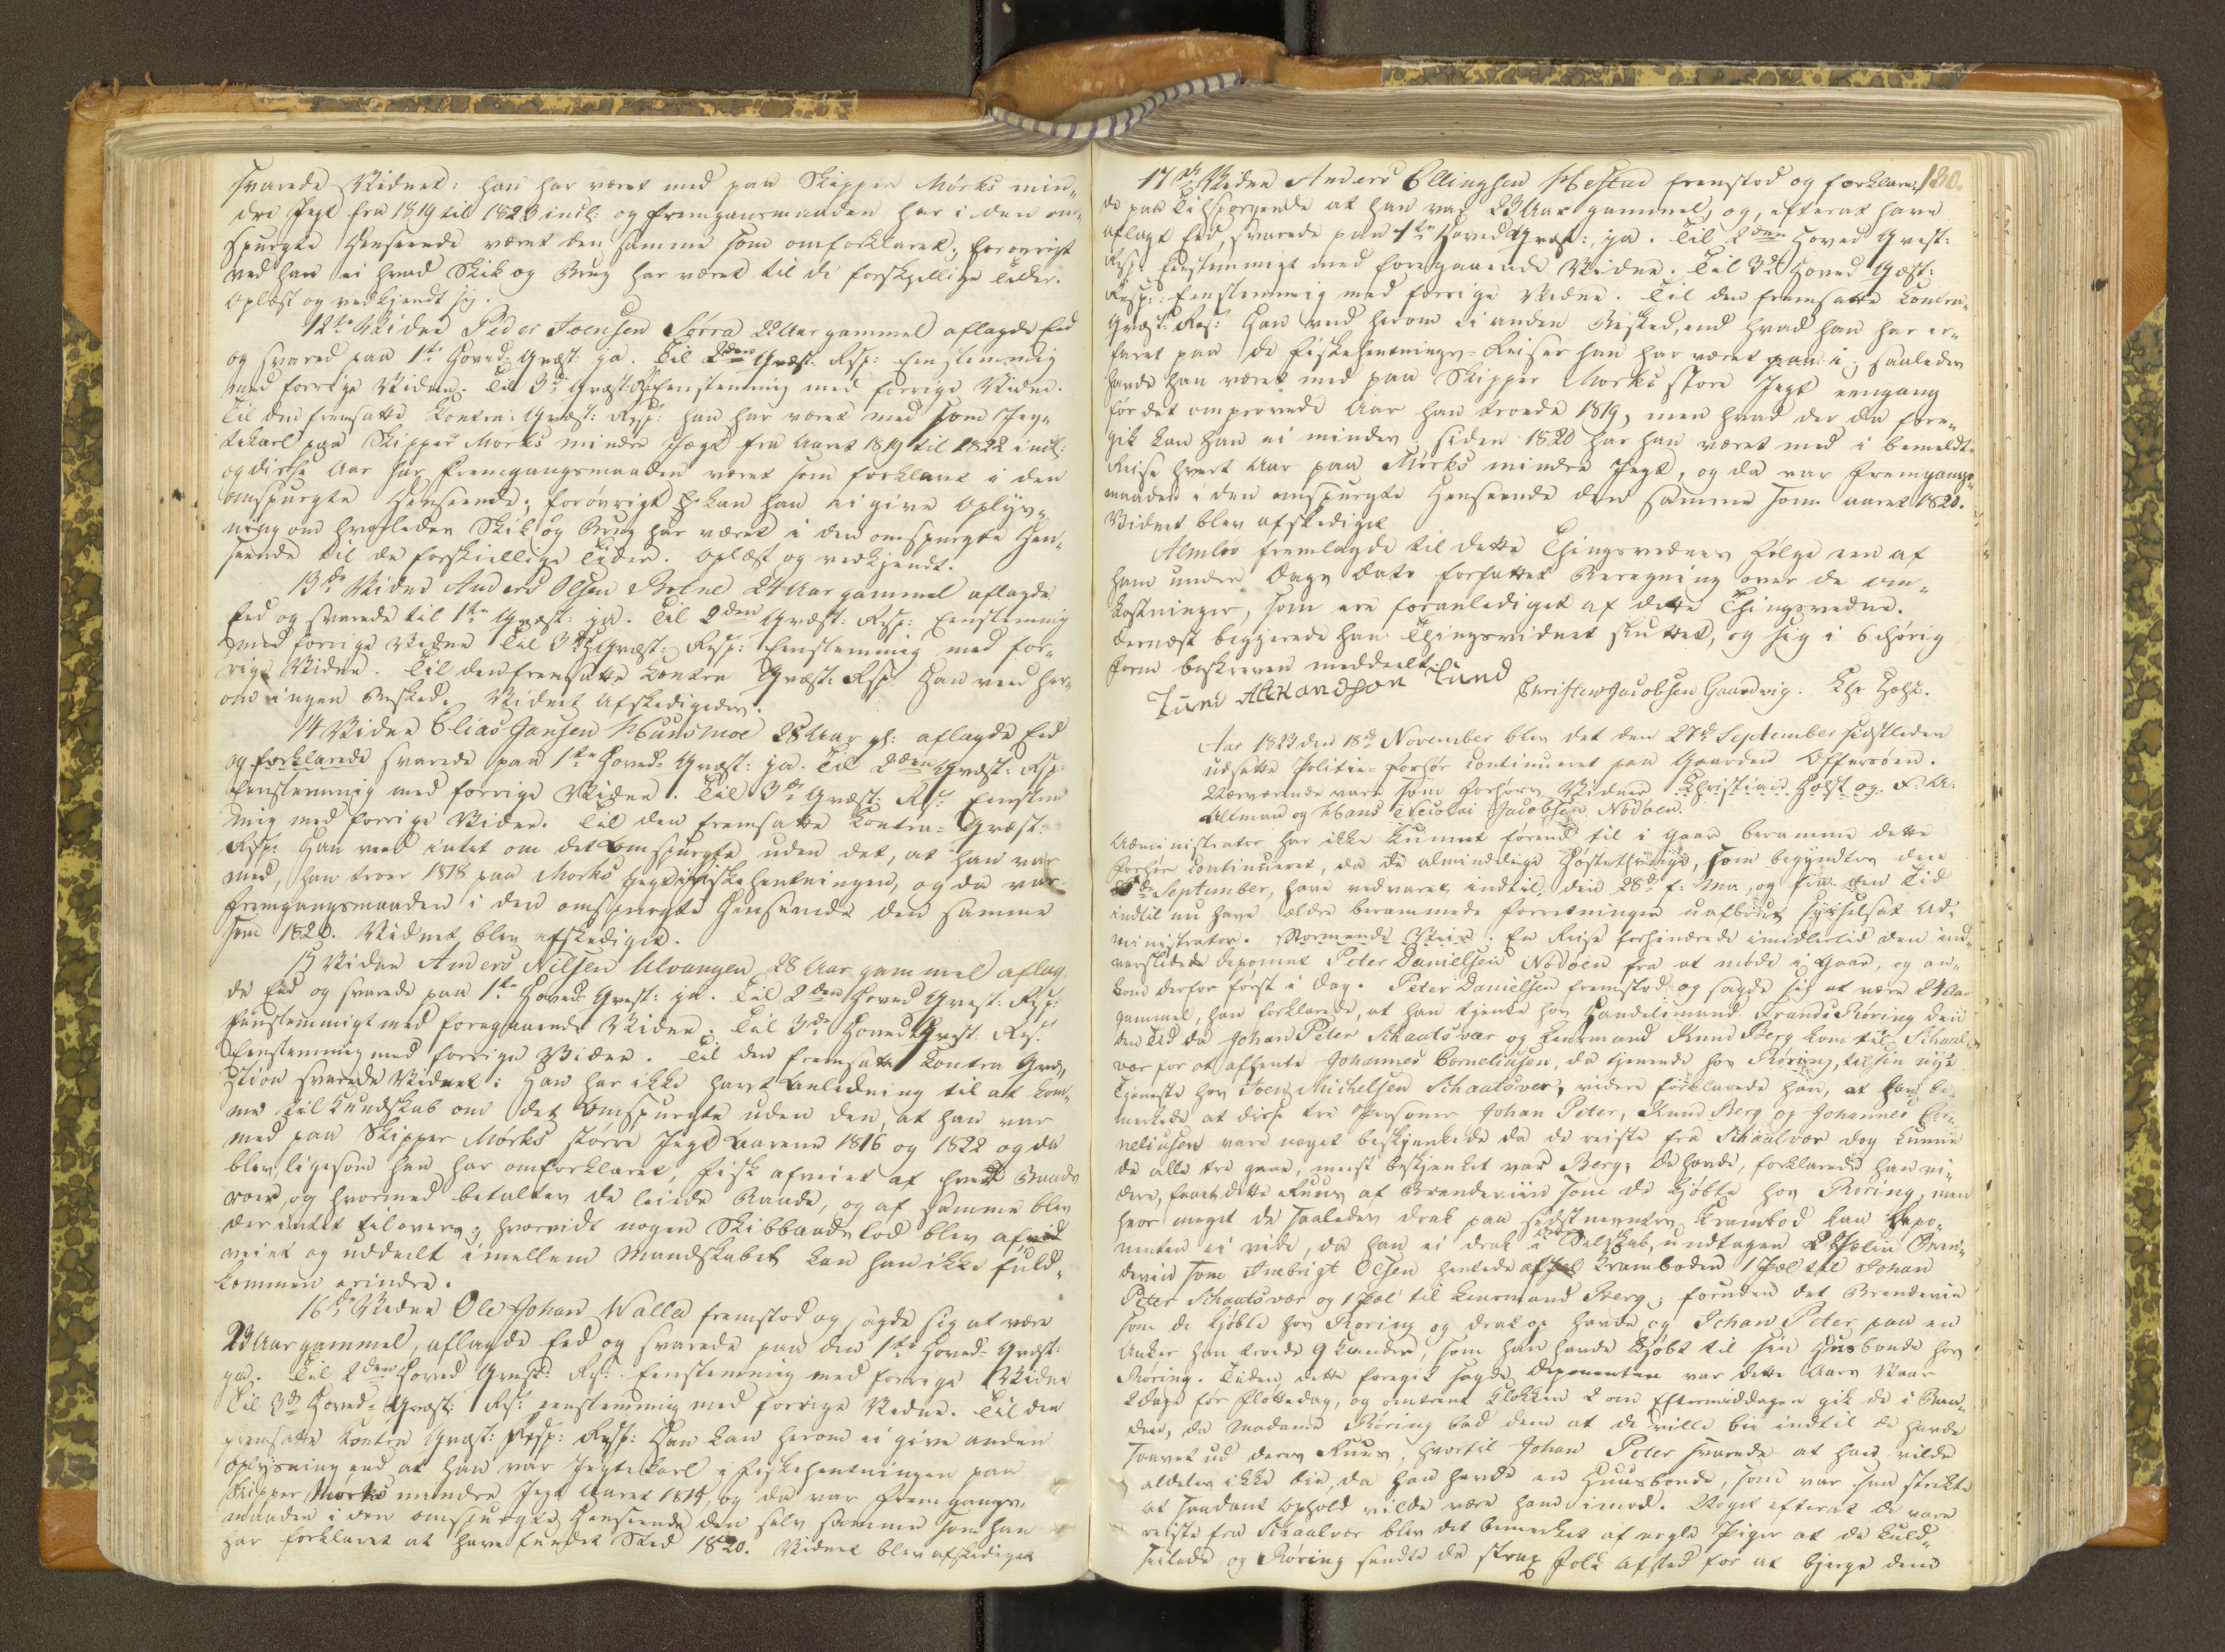 svarede Vidnet: han har været med paa Skipper Mørks min-
dre Jegt fra 1819 til 1823 incl: og fremgansmaaden har i den om-
spurgte Henseende været den samme som omforklaret; forøvrigt
ved han ei hvad Skik og Brug har været til de forskjellige Tider.
Oplæst og vedkjendt sig.
12te Vidne Peder Joensen Sørra 22 Aar gammel aflagde Eed
og svared paa 1te Hoved-Qvæst: ja. Til 2den Qvæst. Resp: Eenstemmig
med forrige Vidne. Til 3de Qvæst: Eenstemmig med forrige Vidne.
Til den fremsatte Kontra: Qvæst: Resp: han har været med som Jeg-
tekarl paa Skipper Mørks mindre Jægt fra Aaret 1819 til 1822 incl:
og disse Aar har Fremgangsmaaden været som forklaret i den
omspurgte Henseende; forøvrigt kan han ei give Oplys-
ning om hvorledes Skik og Brug har været i den omspurgte Hen-
seende til de forskiellige Tider. Oplæst og vedkjendt.
13de Vidne Anders Olsen Botne 24 Aar gammel aflagde
Eed og svarede til 1te Qvæst: ja. Til 2den Qvæst: Resp: Eenstemmig
med forrige Vidne Til 3de Qvæst: Resp: Eenstemmig med for-
rige Vidne. Til den fremsatte Kontra Qvæst: Resp: Han veed her-
om ingen Besked. Vidnet Afskedigedes.
14 Vidne Elias Jansen 28 Aar gl: aflagde Eed
og forklarede svarede paa 1te Hoved-Qvæst: ja. Til 2den Qvæst: Rsp:
Eenstemmig med forrige Vidne. Til 3de Qvæst: Rsp: Eenstem
mig med forrige Vidne. Til den fremsatte Kontra-Qvæst:
Rsp: Han veed intet om det Omspurgte uden det, at han var
med, han troer 1818 paa Morks Jegt i Fiskehentningen, og da var
fremgangsmaaden i den omspurgte Henseende den samme
som 1820. Vidnet blev afskediget.
15 Vidne Anders Nilsen Ulvangen 28 Aar gammel aflag
de Eed og svarede paa 1te Hoved-Qvæst: ja. Til 2den Hoved Qvæst: Rsp:
Eenstemmigt med foregaaende Vidne. Til 3de Hoved Qvæst. Rsp:
Eenstemmig med forrige Vidne. Til den fremsatte Kontra Qvæ-
stion svarede Vidnet: Han har ikke havt Anledning til at kom-
me til Kundskab om det Omspurgte uden den, at han var
med paa Skipper Mørks større Jegt Aarene 1816 og 1822 og da
blev, ligesom han har omforklaret, Fisk afveiet af hver Baads
vare, og hvormed betaltes de leiede Baade, og af samme blev
der intet tilovers; hvorvidt nogen Skibbaads lod blev af
veiet og uddeelt imellem Mandskabet kan han ikke fuld-
kommen erindre.
16de Vidne Ole Johan Walla fremstod og sagde sig at være
23 Aar gammel, aflagde Eed og svarede paa den 1te Hoved-Qvæst:
ja. Til 2den Hoved Qvæst: Rsp: Eenstemmig med forrige Vidne
Til 3de Hoved-Qvæst: Rsp: eenstemmig med forrige Vidne. Til den
fremsatte Kontra Qvæst: Resp: Resp: Han kan herom ei give anden
Oplysning end at han var Jegtekarl i Fiskehentningen paa
Skipper Mørks mindre Jegt Aaret 1819, og da var Fremgangs-
maaden i den omspurgte Henseende den selv samme som han
har forklaret at have fundet Sted 1820. Vidnet blev afskediget
130.
17de Vidne Anders Ellingsen fremstod og forklare-
de paa Tilspørgende at han var 23 Aar gammel, og, efterat have
aflagt Eed, svarede paa 1te Hoved Qvæst:, ja. Til 2den Hoved Qvæst:
Rsp: Eenstemmigt med foregaaende Vidne. Til 3de Hoved Qvæst:
Resp: Eenstemmig med forrige Vidne. Til den fremsatte Kontra-
Qvæst: Rsp: Han veed herom ei anden Besked, end hvad han har er-
faret paa de Fiskehentnings-Reiser han har været paa i; saaledes
havde han været med paa Skipper Mørks store Jegt eengang
før det ompro Aar han troede 1819, men hvad der da fore-
gik kan han ei mindes; siden 1820 har han været med i bemeldte
Reise hvert Aar paa Mørks mindre Jegt, og da var fremgangs-
maaden i den omspurgte Henseende den samme som aaret 1820.
Vidnet blev afskediget
Almløv fremlagde til dette Thingsvidnes Følge een af
ham under Dags Dato forfattet Beregning over de om-
kostninger, som ere foranlediget af dette Thingsvidne.
Dernæst begjerede han Thingsvidnet sluttet, og sig i behørig
Form beskreven meddeelt.
Christen Jacobsen Gaardvig. Chr Holst.
Aar 1823 den 18de November blev det den 27de September sidstleden
udsatte Politie-Forhør continueret paa Gaarden Offersøen.
Nærværende vare som Forhørs Vidner Christian Holst og F: A:
Altman og Hans Nicolai Jacobsen Nødøen.
Administrator har ikke kunnet førend til i gaar beramme dette
Forhør continueret, da de almindelige Høstethinge, som begyndtes den
September, have vedvaret indtil den 28de f: M:, og fra den Tid
indtil nu have ældre berammede forretninger uafbrudt sysselsat Ad-
ministrator. Stormende Veir. En Reise forhindrede imidlertid den ind-
Deponent Peter Danielsen Nødøen fra at møde i gaar, og an-
kom derfor først i Dag. Peter Danielsen fremstod og sagde sig at være 24 Aar
gammel, han forklarede, at han tjente hos Handelsmand Frands Røring den
den Tid da Johan Peter Skaalsvær og Lensmand Knud Berg kom til Skaal-
vær for at afhente Johannes Corneliusen, da tjenende hos Røring, til sin nye
Tjeneste hos Joen Michelsen Skaalsvær; videre forklarede han, at han be-
mærkede at disse tre Personer Johan Peter, Knud Berg og Johannes Cor-
neliusen vare noget beskjenkede da de reiste fra Skaalvær dog kunne
de alle tre gaae, meest beskjenket var Berg; de havde, forklarede han vi-
dere, faaet dette Ruus af Brændeviin som de kjøbte hos Røring, men
hvor meget de saaledes drak paa sidstnevntes Krambod kan Depo-
nenten ei vide, da han ei drak i deres Selskab, undtagen 2 Pæler Bræn-
deviin som Anebrigt Olsen hentede af Kramboden 1 Pæl til Johan
Peter Skaalsvær og 1 Pæl til Lensmand Berg; foruden det Brændeviin
som de kjøbte hos Røring og drak op havde og Johan Peter paa en
Anker han troede 9 Kander, som han havde kjøbt til sin Husbonde hos
Røring. Tiden, dette foregik sagde Deponenten var dette Aars Vaar
2 Dage før Flottedag, og omtrent Klokken 2 om Eftermiddagen gik de i Baa-
den, da Madame Røring bad dem at de vilde bie indtil de havde
sovet ud deres Ruus, hvortil Johan Peter svarede at han vilde
aldeles ikke bie, da han havde en Huusbonde, som var saa strikte
at saadant Ophold vilde være ham imod. Noget efterat de vare
reiste fra Skaalvær blev det bemerket af nogle Piger at de kuld-
seilede og Røring sendte da strax Folk afsted for at bjerge dem